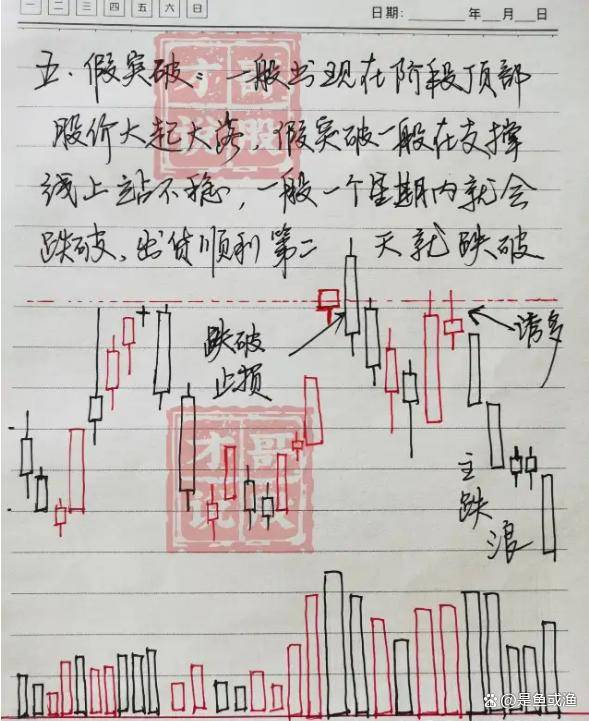 一 二 三 四 五 六 日
日期: 年 月 日
五.假突破:一般出现在阶段顶部
股价大起大落,假突破一般在支撑
线上站不稳,一般一个星期内就会
跌破、出货顺利第二 天就跌破
跌破
止损
诱多
主
跌
浪
才哥
说股
才哥
说股
@是鱼或渔